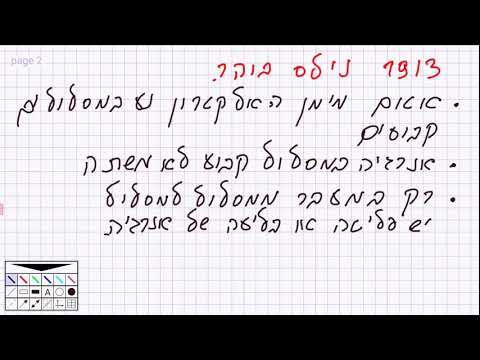 page 2
1913 נילס בוהר.
• אטום מימן האלקטרון נע במסלולים
קבועים
• אנרגיה במסלול קבוע לא משתנה
• רק במעבר ממסלול למסלול
יש פליטה או בליעה של אנרגיה
A